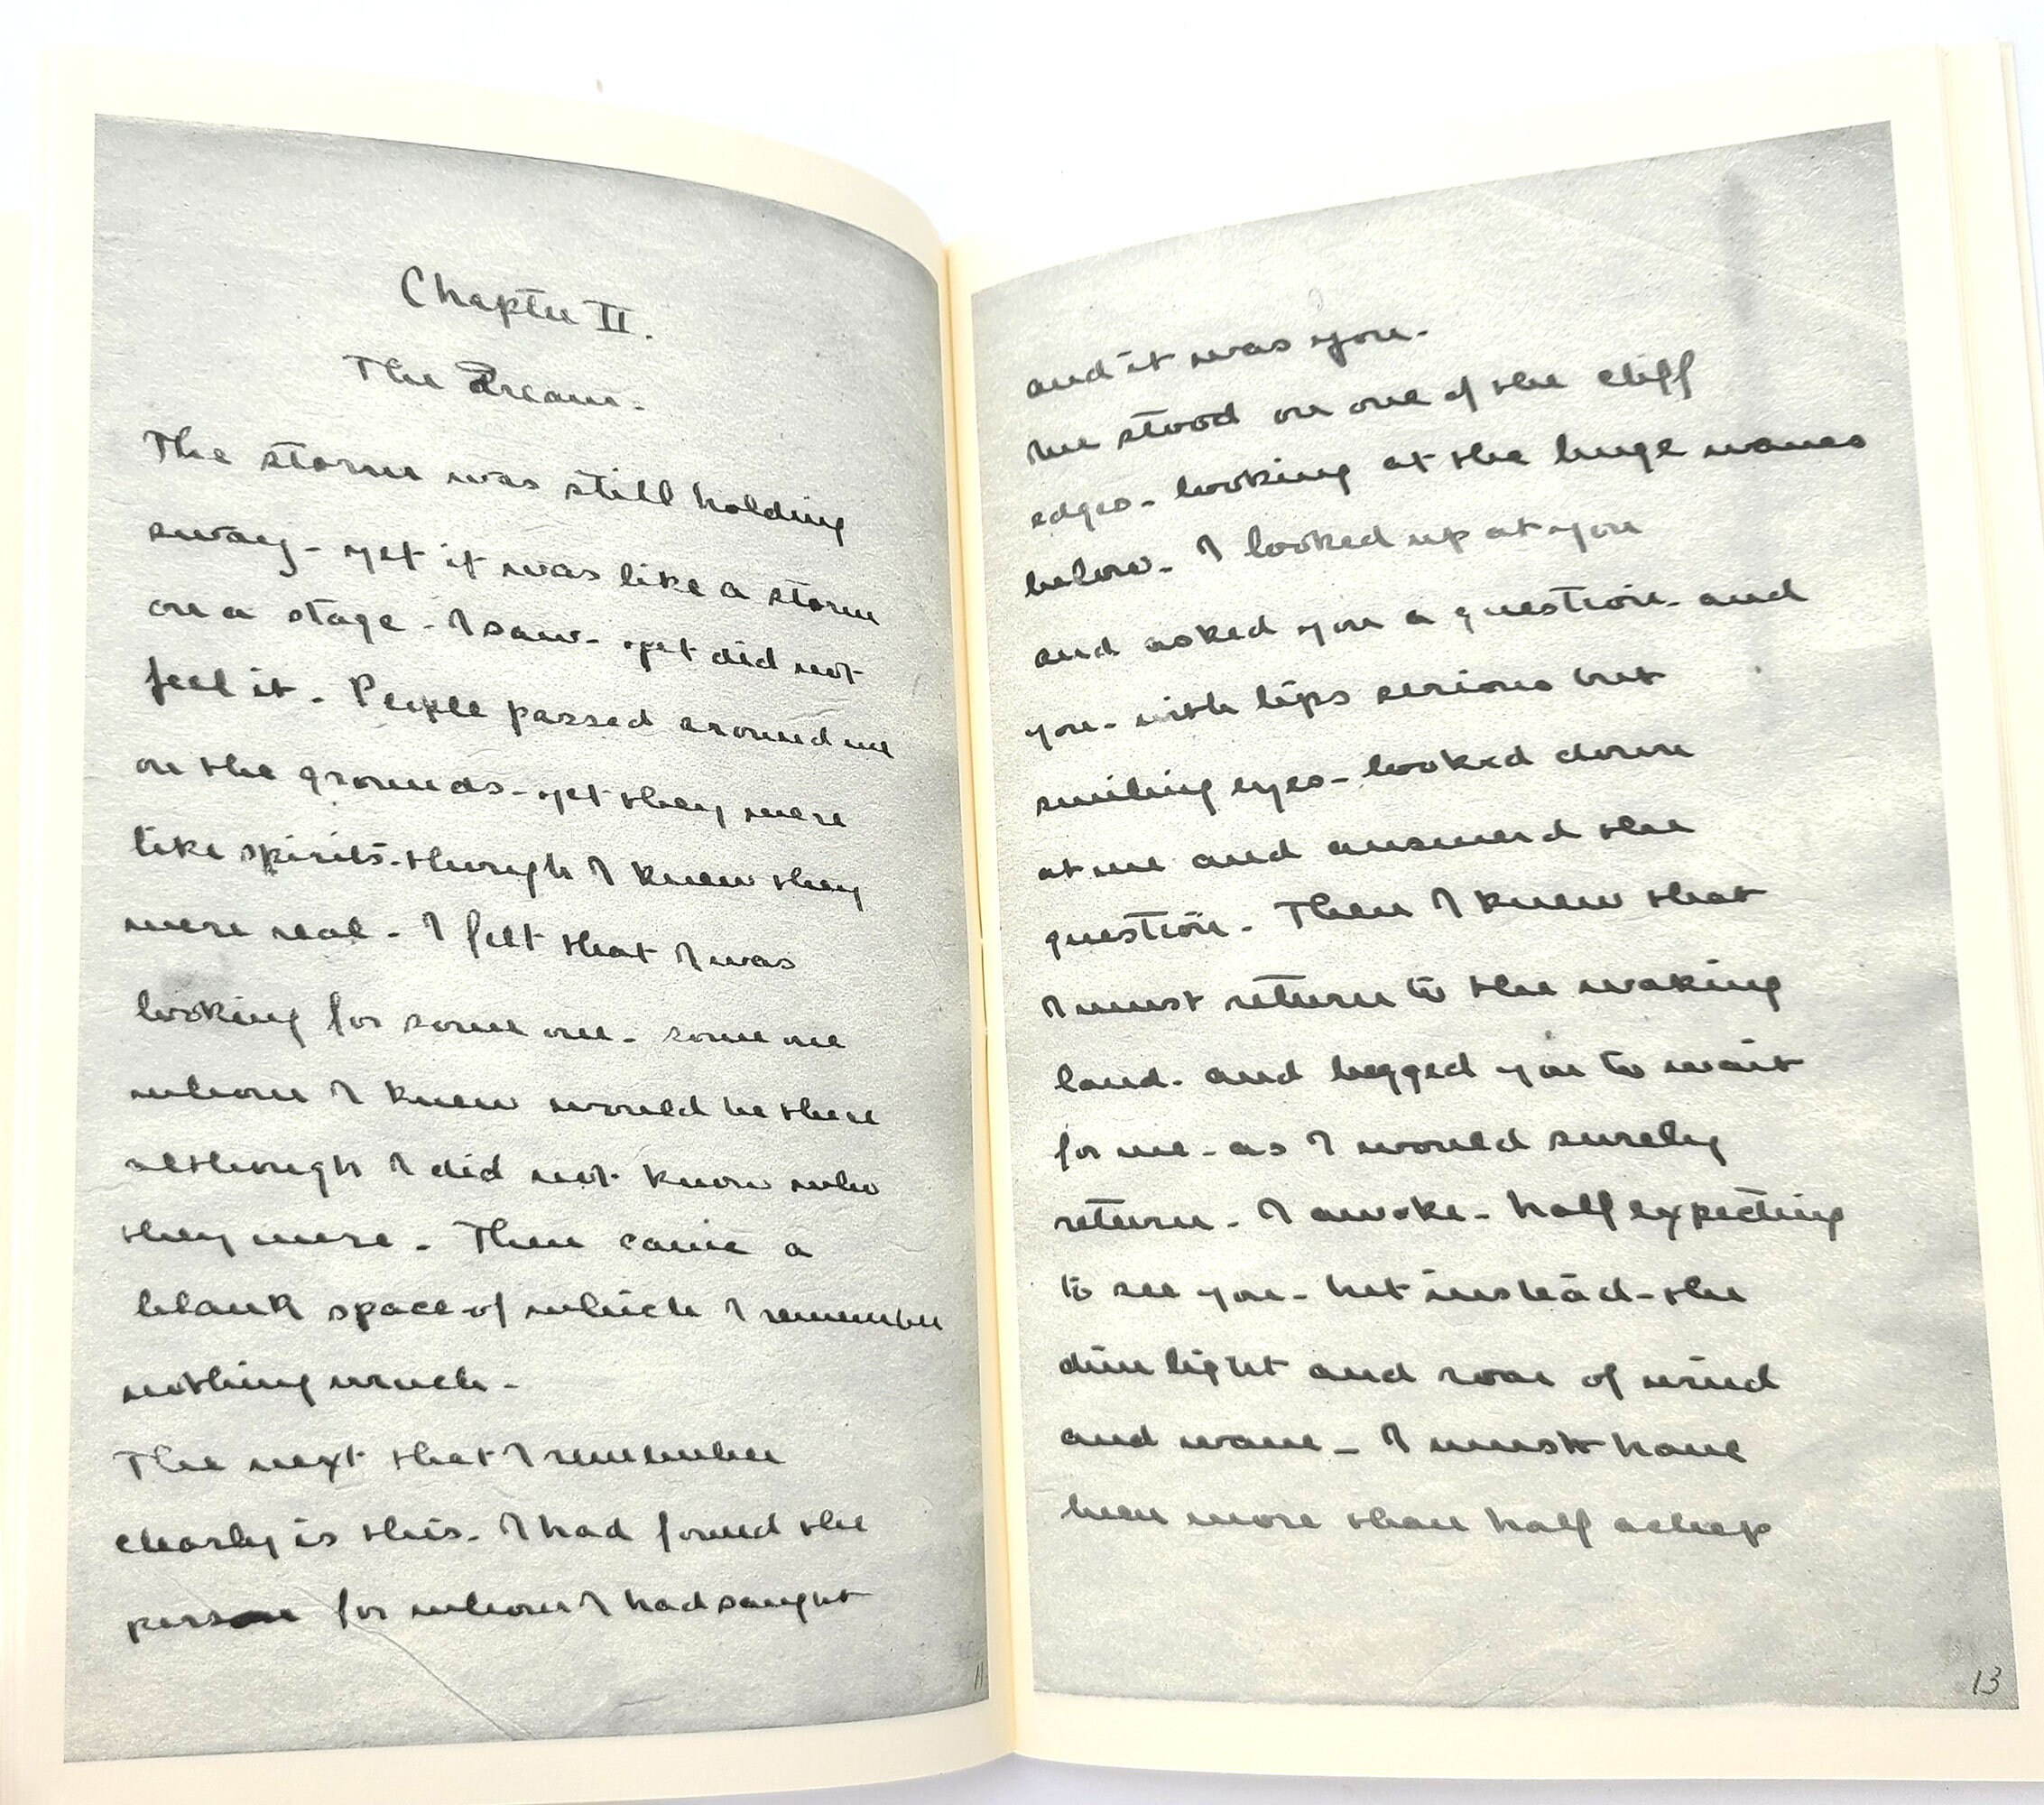 Chapter II.
The Dream.
The storm was still holding
sway - yet it was like a storm
on a stage - I saw - yet did not
feel it - People passed around me
on the grounds - yet they were
like spirits - though I knew they
were real - I felt that I was
looking for some one - some one
whom I knew would be there
although I did not know who
they were - Then came a
blank space - of which I remember
nothing much -
The next that I remember
clearly is this - I had found the
person for whom I had sought
11
and it was you -
We stood on one of the cliff
edges - looking at the huge waves
below - I looked up at you
and asked you a question - and
you - with lips serious but
smiling eyes - looked down
at me and answered the
question - Then I knew that
I must return to the waking
land - and begged you to wait
for me - as I would surely
return - I awoke - half expecting
to see you - but instead - the
dim light and roar of wind
and wave - I must have
been more than half asleep
13